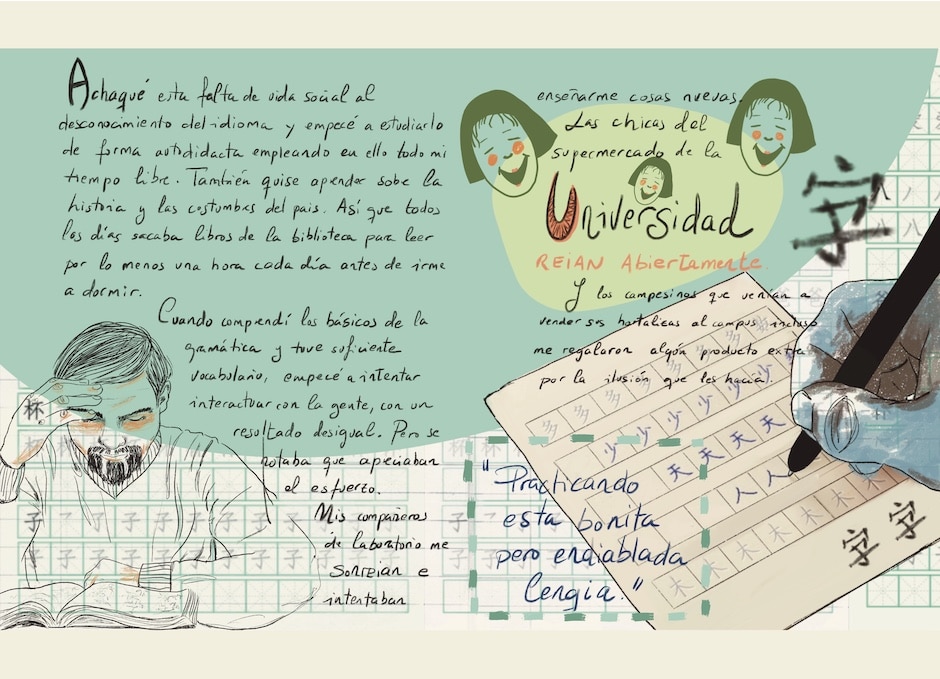 Achaqué esta falta de vida social al
desconocimiento del idioma y empecé a estudiarlo
de forma autodidacta empleando en ello todo mi
tiempo libre. También quise aprender sobe la
historia y las costumbres del pais. Así que todos
los días sacaba libros de la biblioteca para leer
por lo menos una hora cada día antes de irme
a dormir.
Cuando comprendí los básicos de la
gramática y tuve suficiente
vocabulario, empecé a intentar
interactuar con la gente, con un
resultado desigual. Pero se
notaba que apreciaban
el esfuerzo.
Mis compañeros
de laboratorio me
sonreian e
intentaban
enseñarme cosas nuevas.
Las chicas del
supermercado de la
Universidad
REIAN AbierTamente.
Y los campesinos que venían a
vender sus hortalicas al campus incluso
me regalaron algún producto extra
por la ilusión que les hacía.
"Practicando
esta bonita
pero endiablada
lengia."
字
杯
杯
子 子 子 子 子 子 子 子
子 子 子 子 子 子 子 子
多 多 多 多 多
少 少 少 少 少
天 天 天 天 天
人 人
木 木 木 木 木 木
字 字
八 八